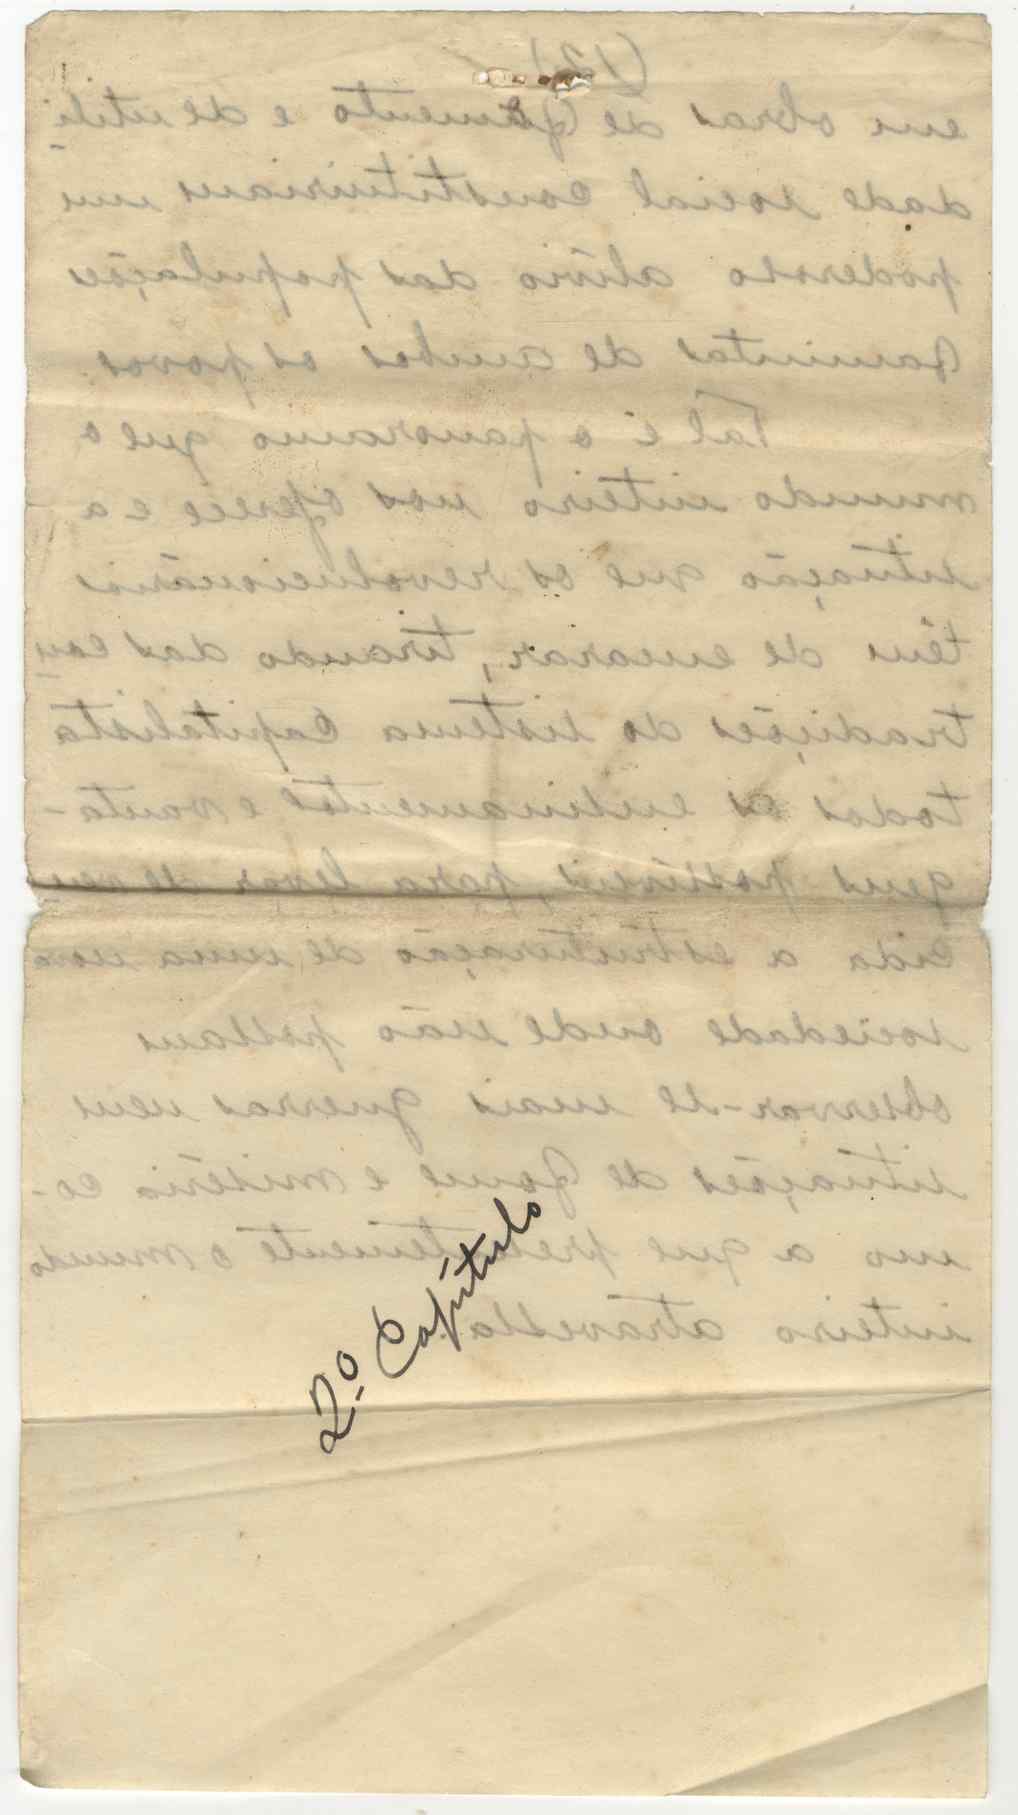 (12)
em obras de fomento e de utili
dade social constituiriam um
poderoso alívio das populações
famintas de ambos os povos.
Tal é o panorama que o
mundo inteiro nos oferece e a
situação que os revolucionários
têm de encarar, tirando das con
tradições do sistema Capitalista
todos os ensinamentos e vanta-
gens possíveis, para levar de ven
cida a estruturação de uma nova
sociedade onde não possam
observar-se mais guerras nem
situações de fome e miséria co-
mo a que presentemente o mundo
inteiro atravessa.
2º Capítulo